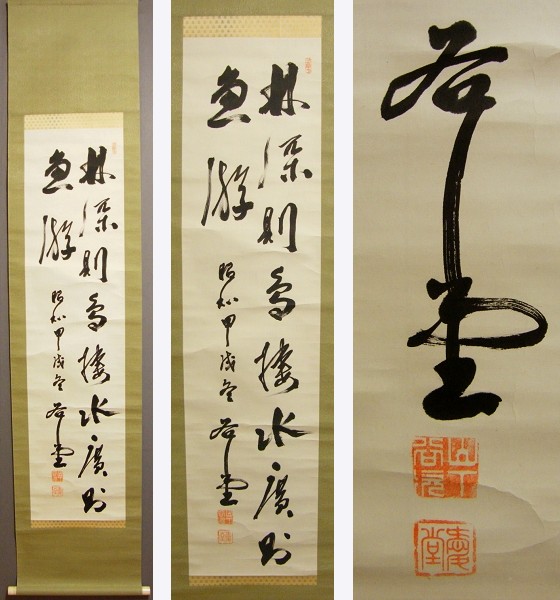 林深則鳥棲水廣則
魚游
昭和甲戌冬
堂
林深則鳥棲水廣則
魚游
昭和甲戌冬
堂
堂
山下
堂